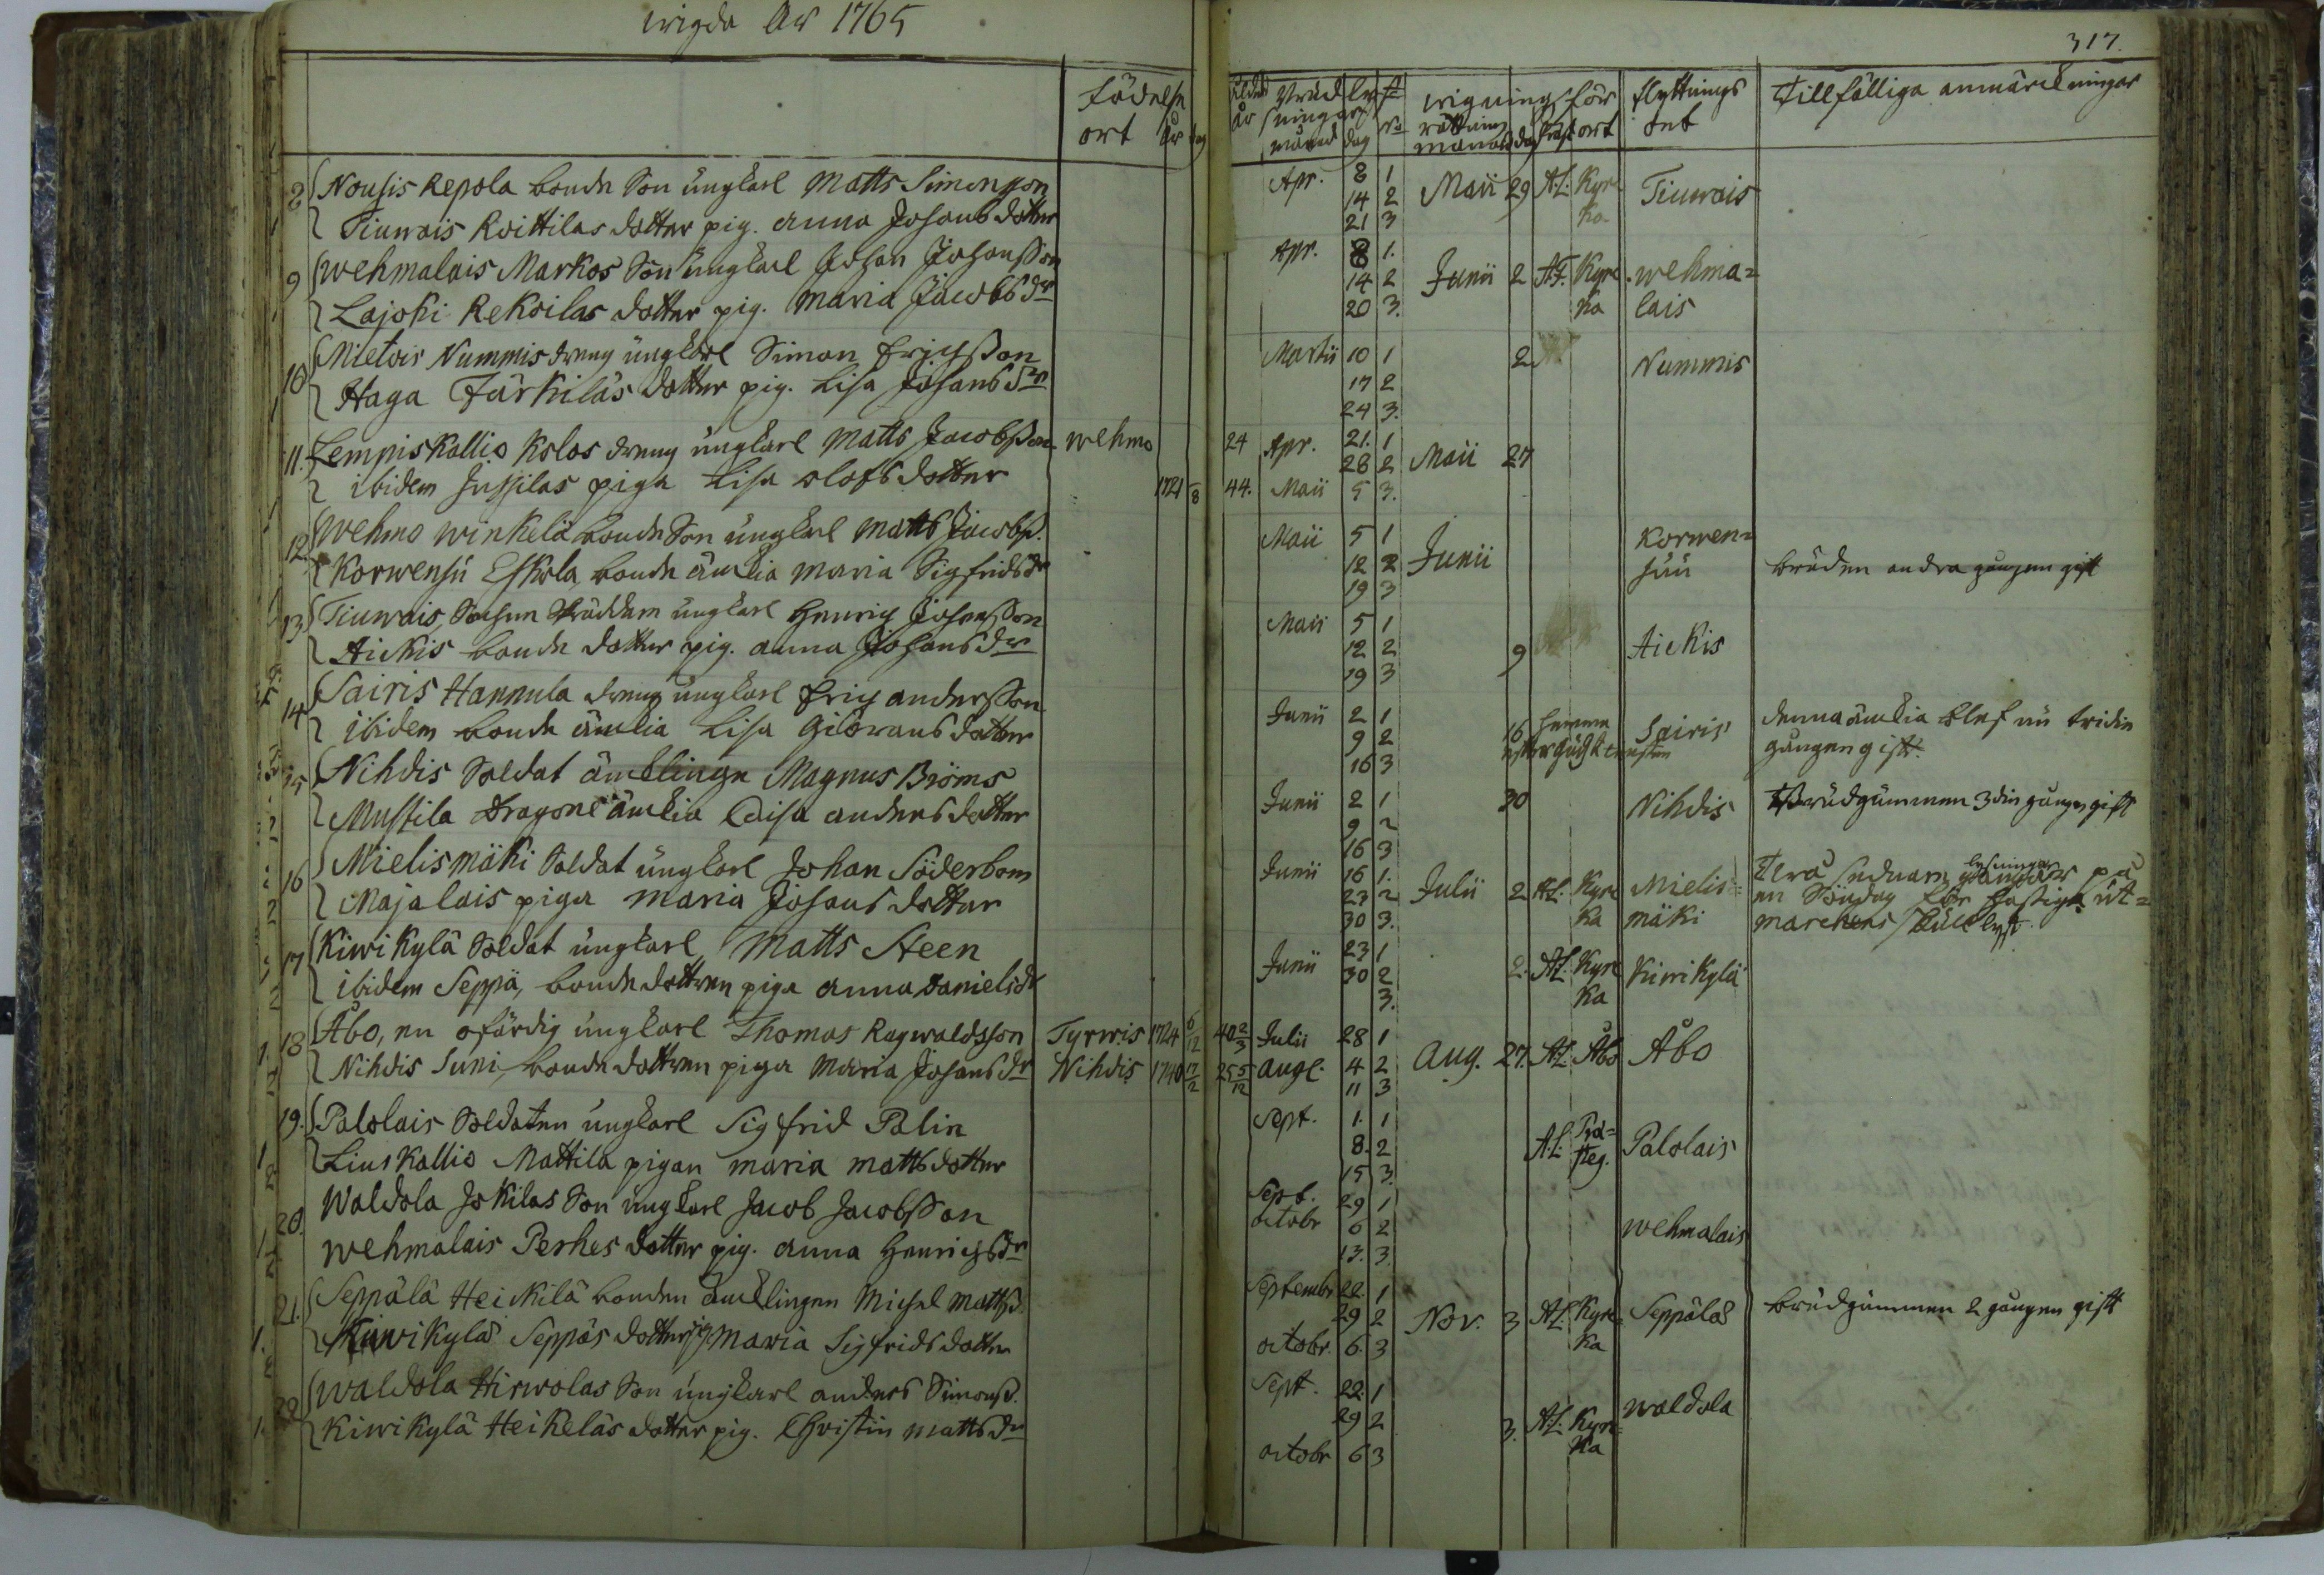 wigda År 1765
317.
födelse ort år dag
ålder år brud lysningar månad dag No wigning förrättning månad dag präst ort flyttnings ort Tillfälliga anmärckningar
8 Nousis Repola bonde Son ungkarl Matts Simonsson Apr. 8 1 Maii 29 A.L. Kyrc Tiuwais
Tiuwais Koittilas dotter pig. anna Johans dotter 14 2 ka
21 3
9 Wehmalais Markos Son ungkarl Johan Johansson Apr. 8 1. Junii 2 Kyrc wehma=
Lajoki Rekoilas dotter pig. Maria Jacobs dr 14 2 ka lais
20 3.
10 Mietois Nummis dreng ungkarl Simon Erichsson Martii 10 1 2 Nummis
Haga Järkiläs dotter pig. Lisa Johans dr 17 2
24 3.
11. Lempiskallio Kolas dreng ungkarl Matts Jacobsson wehmo 24 Apr. 21. 1 Maii 27
28 2
ibidem Jussilas piga Lisa olofs dotter 1721 8 44. Maii 5 3.
12 Wehmo winkelä bonde Son ungkarl Matts Jacobss. Maii 5 1 Junii Korwen=
Korwensu Eskola bonde änckia Maria Sigfrids dr 12 2 suu bruden andra gången gift
19 3
13 Tiuwais, Sochne Skräddaren ungkarl Henrich Johansson Maii 5 1
Aickis bonde dotter pig. anna Johans dr 12 2 9 Aickis
19 3
14 Sairis Hannula dreng ungkarl Erich andersson Junii 2 1 16 hemma Sairis denna änckia blef nu tridie
ibidem bonde änckia Lisa dotter 9 2 gången gift.
16 3
15 Nihdis Soldat äncklinge Magnus Bröms Junii 2 1 30 Nihdis Brudgummen 3die gången gift
Mustila Dragone änckia Caisa anders dotter 9 2
16 3
16 Mielismäki Soldat ungkarl Johan Söderbom Junii 16 1. Julii 2 A.L. Kyrc Mielis= lysningar på
Majalais piga Maria Johans dotter 23 2 ka mäki en Söndag för hastigt ut=
30 3. marchens skull
17 Kiwikylä Soldat ungkarl Matts Steen Junii 23 1 2. A.L. Kyrc Kiwikylä
ibidem Seppä, bonde dottren piga anna Daniels dr 30 2 ka
3.
18 Åbo, en ofärdig ungkarl Thomas Ragwaldsson Tyrwis 1724 6/12 40 2/3 Julii 28 1 Aug. 27. A.L. Åbo Åbo
Nihdis Suni, bonde dottren piga Maria Johans dr Nihdis 1740 17/2 25 5/12 aug. 4 2
11 3
19. Palolais Soldaten ungkarl Sigfrid Palin Sept. 1. 1 A.L. Prä= Palolais
Liuskallio Mattila pigan maria matts dotter 8. 2 steg.
15 3.
20. Waldola Jokilas Son ungkarl Jacob Jacobsson Sept. 29 1 wehmalais
wehmalais Perhes dotter pig. anna Henrichs dr octobr 6 2
13. 3.
21. Seppälä Heickilä bonden äncklingen Michel Mattss. Septembr 22. 1 Nov. 3 A.L. Kyrc= Seppälä brudgummen 2 gången gift
Kiwikylä Seppäs dotter pig Maria Sigfrids dotter 29 2 ka
octobr. 6. 3
22 Waldola Hirwolas Son ungkarl anders Simonss. Sept. 22. 1 3. A.L. Kyrc= waldola
Kiwikylä Heikeläs dotter pig. Christin matts dr 29 2 ka
octobr 6 3